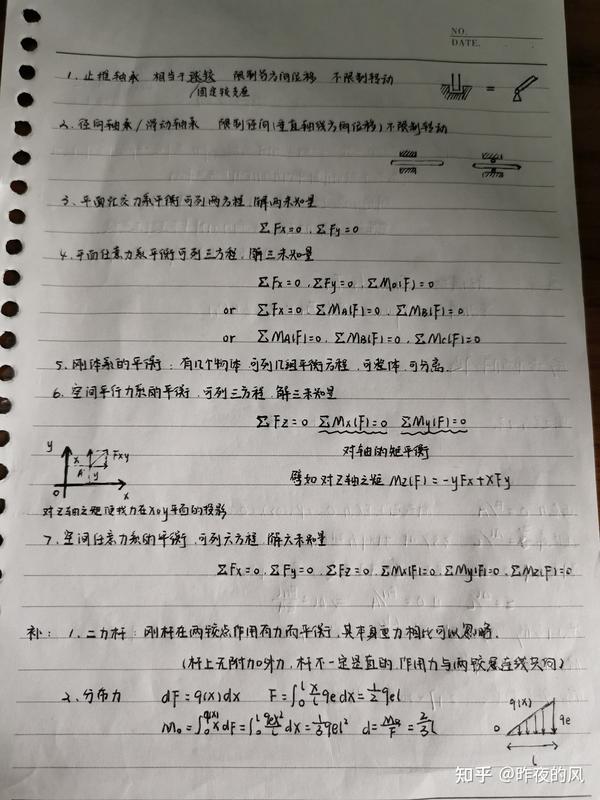 NO.
DATE.
1. 止推轴承 相当于球铰 限制各方向位移 不限制转动
/固定铰支座
=
2. 径向轴承/滑动轴承 限制径向(垂直轴线方向位移)不限制转动
3. 平面汇交力系平衡 可列两方程,解两未知量
ΣFx=0 , ΣFy=0
4. 平面任意力系平衡 可列三方程,解三未知量
ΣFx=0 , ΣFy=0 , ΣMo(F)=0
or ΣFx=0 , ΣMA(F)=0 , ΣMB(F)=0
or ΣMA(F)=0 , ΣMB(F)=0 , ΣMc(F)=0
5. 刚体系的平衡:有几个物体 可列几组平衡方程,可整体,可分离.
6. 空间平行力系的平衡,可列三方程,解三未知量
ΣFz=0 ΣMx(F)=0 ΣMy(F)=0
对轴的矩平衡
y x Fxy A y O x
譬如对Z轴之矩 Mz(F)=-yFx+xFy
对Z轴之矩 便找力在xoy平面的投影
7. 空间任意力系的平衡,可列六方程,解六未知量
ΣFx=0 , ΣFy=0 , ΣFz=0 , ΣMx(F)=0 , ΣMy(F)=0 , ΣMz(F)=0
补: 1. 二力杆:刚杆在两铰点作用有力而平衡,其本身重力相比可以忽略.
(杆上无附加外力,杆不一定是直的,作用力与两铰点连线共向)
2. 分布力 dF=q(x)dx F=∫₀ˡ x/l qe dx=½qel
Mo=∫₀^q(x) x dF=∫₀ˡ qex²/l dx=⅓qel² d=Mo/F=⅔l
q(x) qe O l
知乎 @昨夜的风